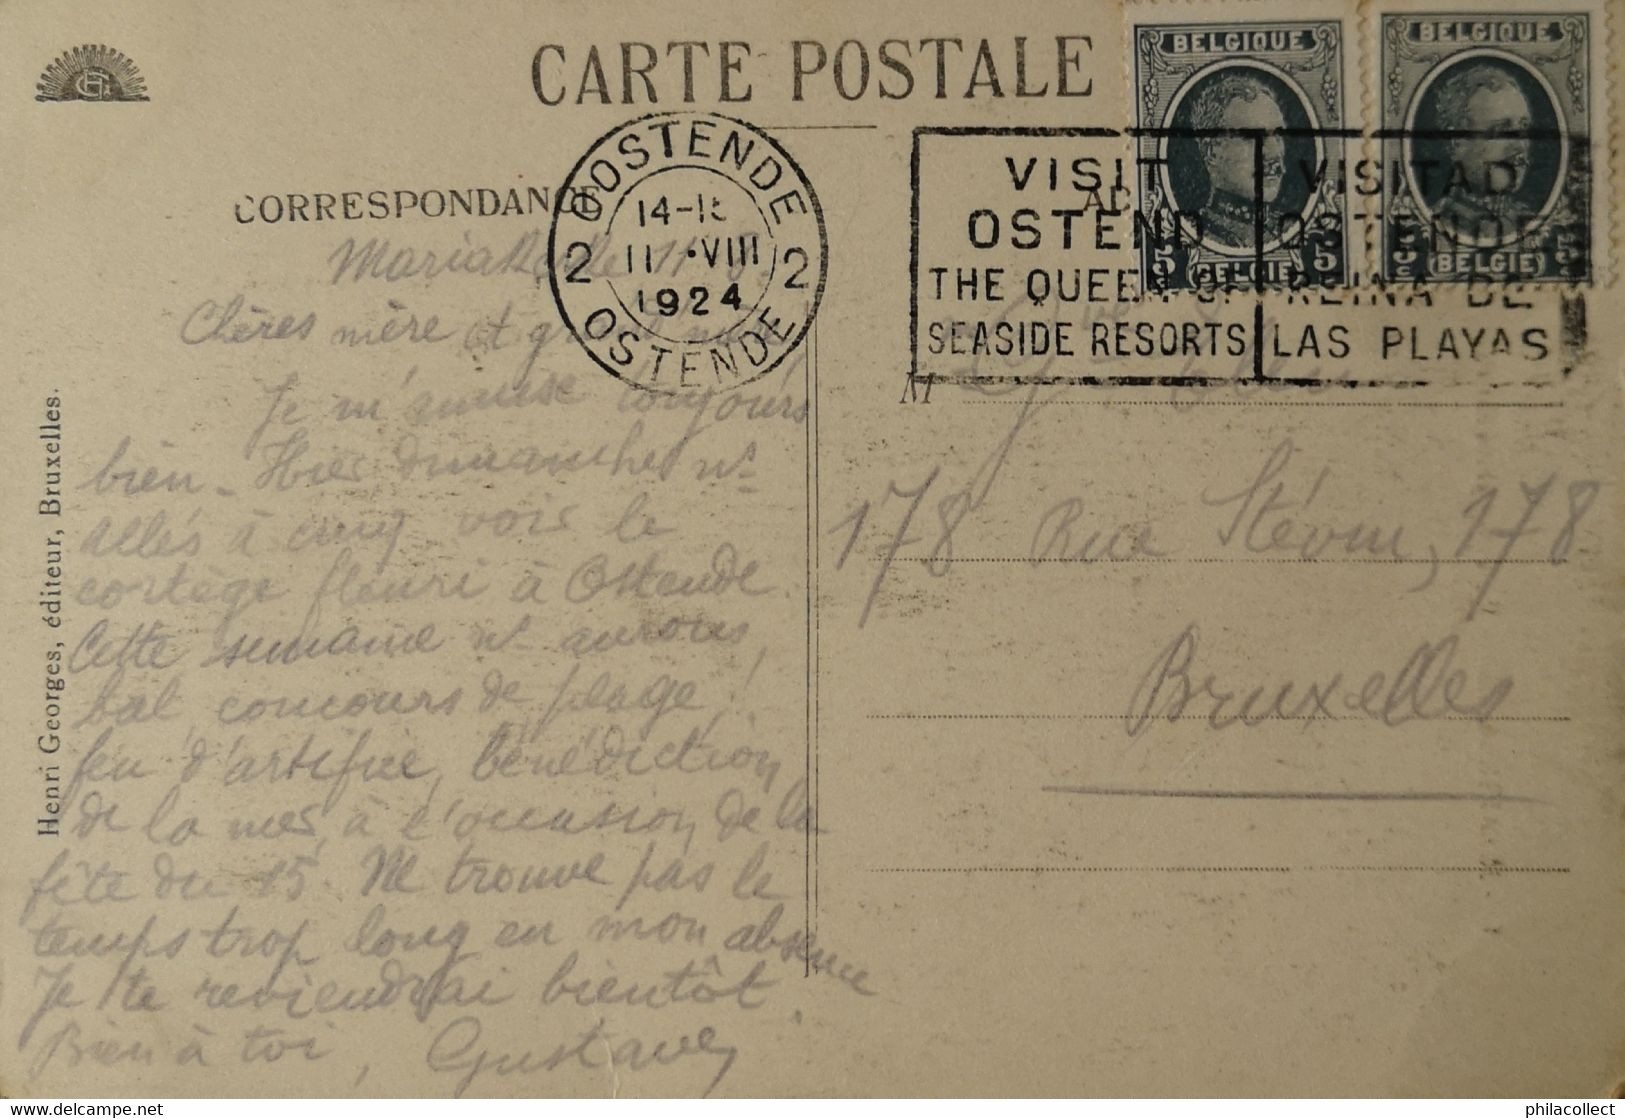 CARTE POSTALE
CORRESPONDANCE
OSTENDE
14-15
2 11 · VIII 2
1924
OSTENDE
BELGIQUE
5c 5c
(BELGIE)
BELGIQUE
5c 5c
(BELGIE)
VISIT
OSTEND
THE QUEEN OF
SEASIDE RESORTS
VISITAD
OSTENDE
REINA DE
LAS PLAYAS
Mariakerke 11-8-
Chères mère et
Je m'amuse toujours
bien - Hier dimanche ns
allés à cinq voir le
cortège fleuri à Ostende.
Cette semaine ns aurons,
bal, concours de plage,
feu d'artifice, bénédiction
de la mer, à l'occasion de la
fête du 15. Ne trouve pas le
temps trop long en mon absence
Je te reviendrai bientôt.
Bien à toi, Gustave
M
178 Rue Stévin, 178
Bruxelles
Henri Georges, éditeur, Bruxelles.
philacollect